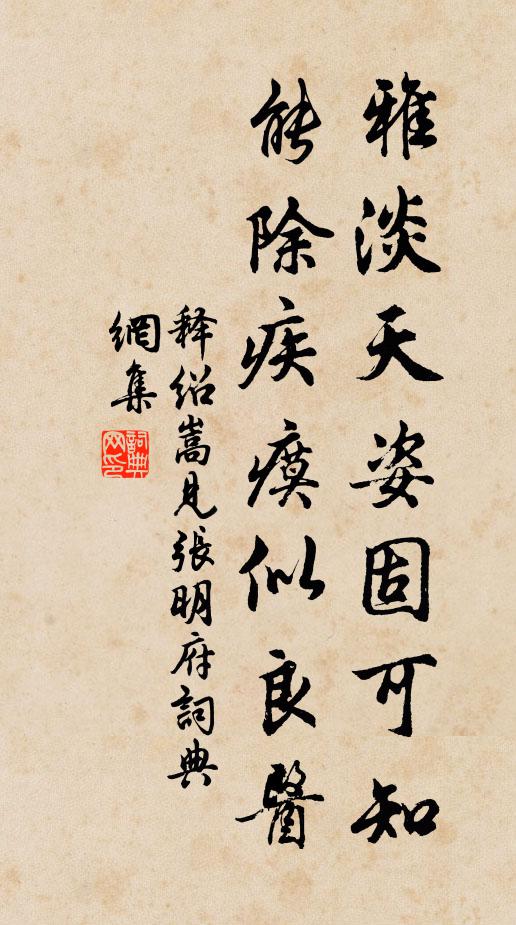 雅淡天姿固可知
能除疾瘼似良醫
释紹嵩見張明府詞典
網集
詞典
网印